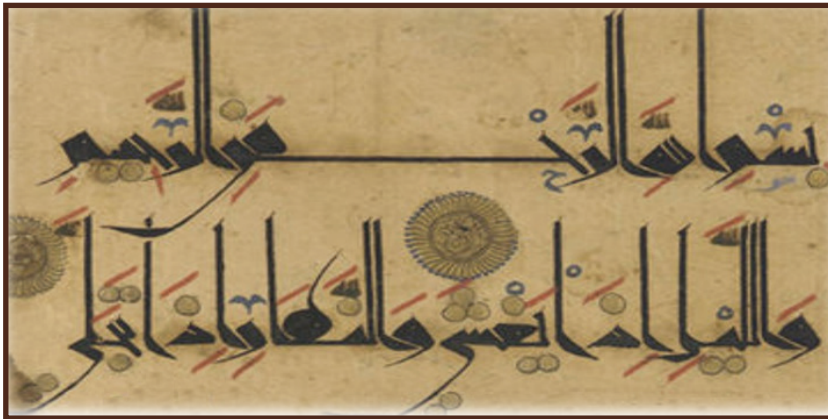 بِسْمِ اللَّهِ الرَّحْمَٰنِ الرَّحِيمِ
وَاللَّيْلِ إِذَا يَغْشَىٰ وَالنَّهَارِ إِذَا تَجَلَّىٰ